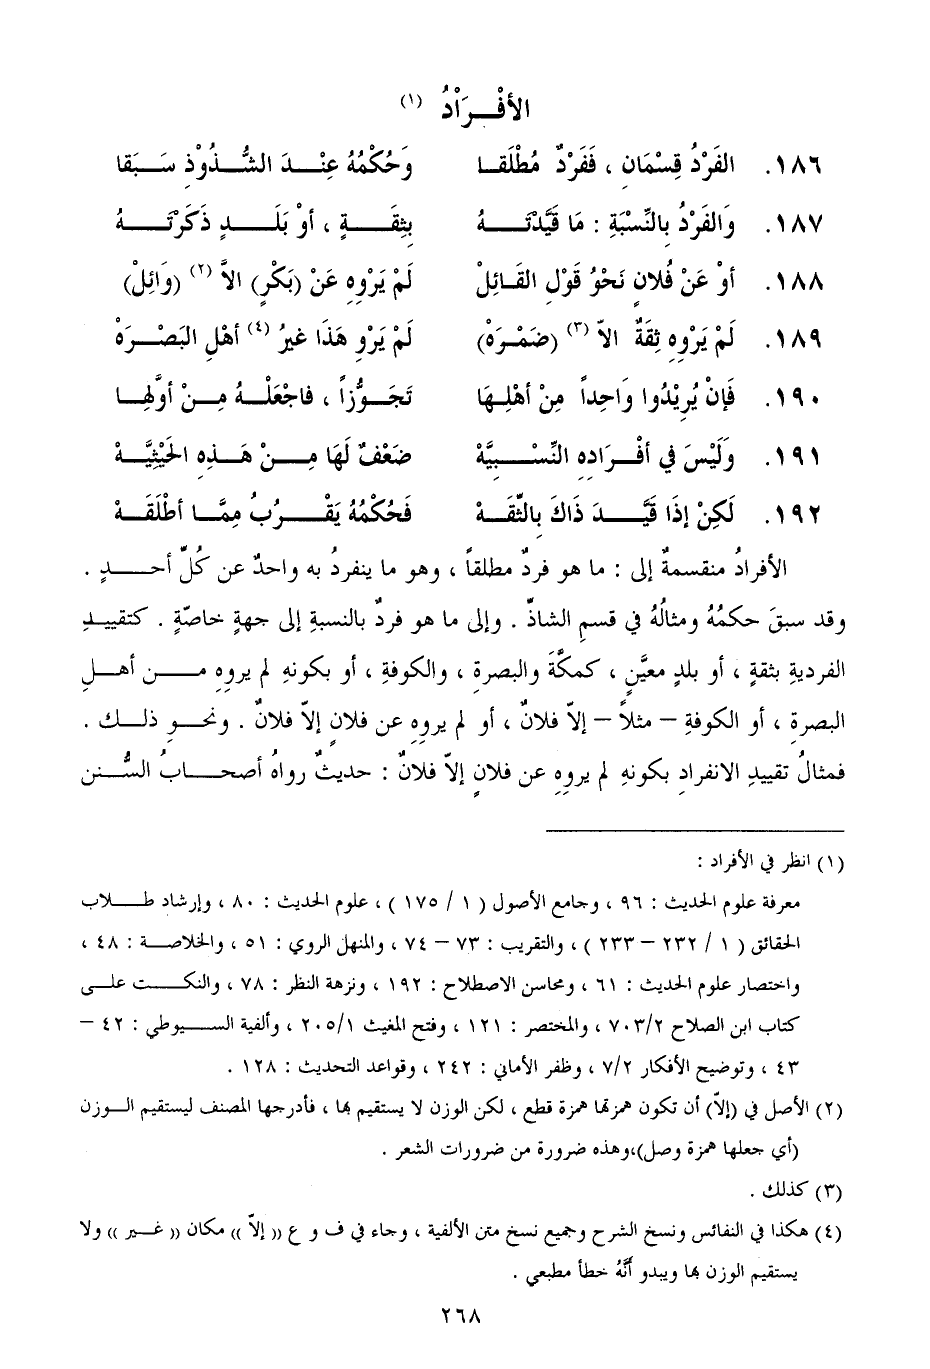 الأفْرَادُ (١)
١٨٦. الفَرْدُ قِسْمَانِ ، فَفَرْدٌ مُطْلَقَا وَحُكْمُهُ عِنْدَ الشُّذُوْذِ سَبَقَا
١٨٧. وَالفَرْدُ بِالنِّسْبَةِ : مَا قَيَّدْتَهُ بِثِقَةٍ ، أوْ بَلَدٍ ذَكَرْتَهُ
١٨٨. أوْ عَنْ فُلانٍ نَحْوُ قَوْلِ القَائِلْ لَمْ يَرْوِهِ عَنْ (بَكْرٍ) الاَّ (٢) (وَائِلْ)
١٨٩. لَمْ يَرْوِهِ ثِقَةٌ الاّ (٣) (ضَمْرَهْ) لَمْ يَرْوِ هَذَا غيرُ (٤) أهْلِ البَصْرَهْ
١٩٠. فَإنْ يُرِيْدُوا وَاحِداً مِنْ أهْلِهَا تَجَوُّزاً ، فاجْعَلْهُ مِنْ أوَّلِهَا
١٩١. وَلَيْسَ في أفْرَادِهِ النِّسْبِيَّهْ ضَعْفٌ لَهَا مِنْ هَذِهِ الحَيْثِيَّهْ
١٩٢. لَكِنْ إذَا قَيَّدَ ذَاكَ بِالثِّقَهْ فَحُكْمُهُ يَقْرُبُ مِمَّا أطْلَقَهْ
الأفرادُ منقسمةٌ إلى : ما هو فردٌ مطلقاً ، وهو ما ينفردُ به واحدٌ عن كُلِّ أحدٍ .
وقد سبقَ حكمُهُ ومثالُهُ في قسمِ الشاذِّ . وإلى ما هو فردٌ بالنسبةِ إلى جهةٍ خاصّةٍ . كتقييدِ
الفرديةِ بثقةٍ ، أو بلدٍ معيَّنٍ ، كمكَّةَ والبصرةِ ، والكوفةِ ، أو بكونهِ لم يروهِ من أهلِ
البصرةِ ، أو الكوفةِ – مثلاً – إلاّ فلانٌ ، أو لم يروِهِ عن فلانٍ إلاّ فلانٌ . ونحو ذلك .
فمثالُ تقييدِ الانفرادِ بكونهِ لم يروِهِ عن فلانٍ إلاّ فلانٌ : حديثٌ رواهُ أصحابُ السُّنن
(١) انظر في الأفراد :
معرفة علوم الحديث : ٩٦ ، وجامع الأصول ( ١ / ١٧٥ ) ، علوم الحديث : ٨٠ ، وإرشاد طلاب
الحقائق ( ١ / ٢٣٢ – ٢٣٣ ) ، والتقريب : ٧٣ – ٧٤ ، والمنهل الروي : ٥١ ، والخلاصة : ٤٨ ،
واختصار علوم الحديث : ٦١ ، ومحاسن الاصطلاح : ١٩٢ ، ونزهة النظر : ٧٨ ، والنكت على
كتاب ابن الصلاح ٧٠٣/٢ ، والمختصر : ١٢١ ، وفتح المغيث ٢٠٥/١ ، وألفية السيوطي : ٤٢ –
٤٣ ، وتوضيح الأفكار ٧/٢ ، وظفر الأماني : ٢٤٢ ، وقواعد التحديث : ١٢٨ .
(٢) الأصل في (إلاّ) أن تكون همزتها همزة قطع ، لكن الوزن لا يستقيم بها ، فأدرجها المصنف ليستقيم الوزن
(أي جعلها همزة وصل)،وهذه ضرورة من ضرورات الشعر .
(٣) كذلك .
(٤) هكذا في النفائس ونسخ الشرح وجميع نسخ متن الألفية ، وجاء في ف و ع (( إلاّ )) مكان (( غير )) ولا
يستقيم الوزن بها ويبدو أنَّهُ خطأ مطبعي .
٢٦٨